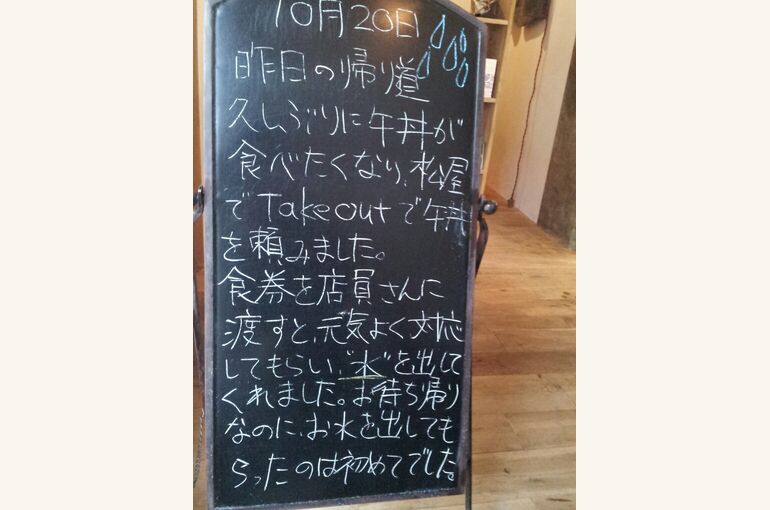 10月20日
昨日の帰り道
久しぶりに牛丼が
食べたくなり、松屋
でTakeoutで牛丼
を頼みました。
食券を店員さんに
渡すと、元気よく対応
してもらい、"水"を出して
くれました。お待ち帰り
なのに、お水を出しても
らったのは初めてでした。